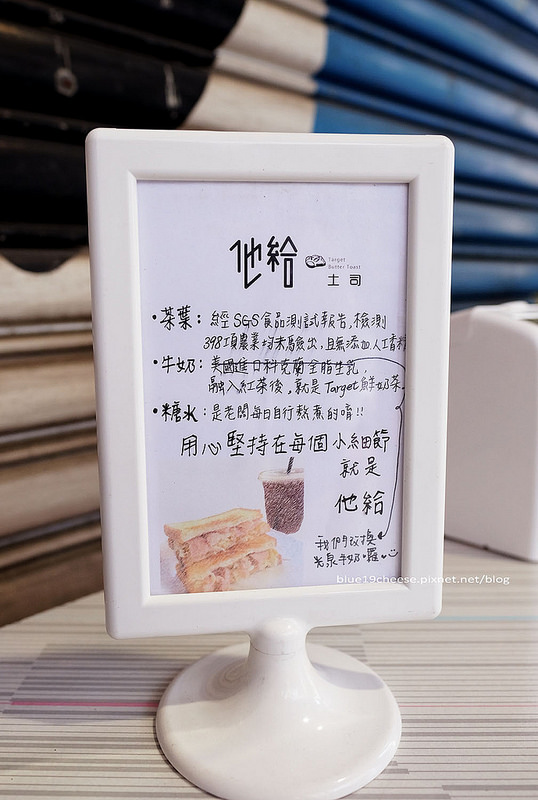 他給
Target
Butter Toast
土司
•茶葉：經SGS食品測試報告，檢測
398項農業均未驗出，且無添加人工香料
•牛奶：美國進口科克蘭全脂生乳，
融入紅茶後，就是Target鮮奶茶
•糖水：是老闆每日自行熬煮的唷!!
用心堅持在每個小細節
就是
他給
我們改換
光泉牛奶囉
blue19cheese.pixnet.net/blog